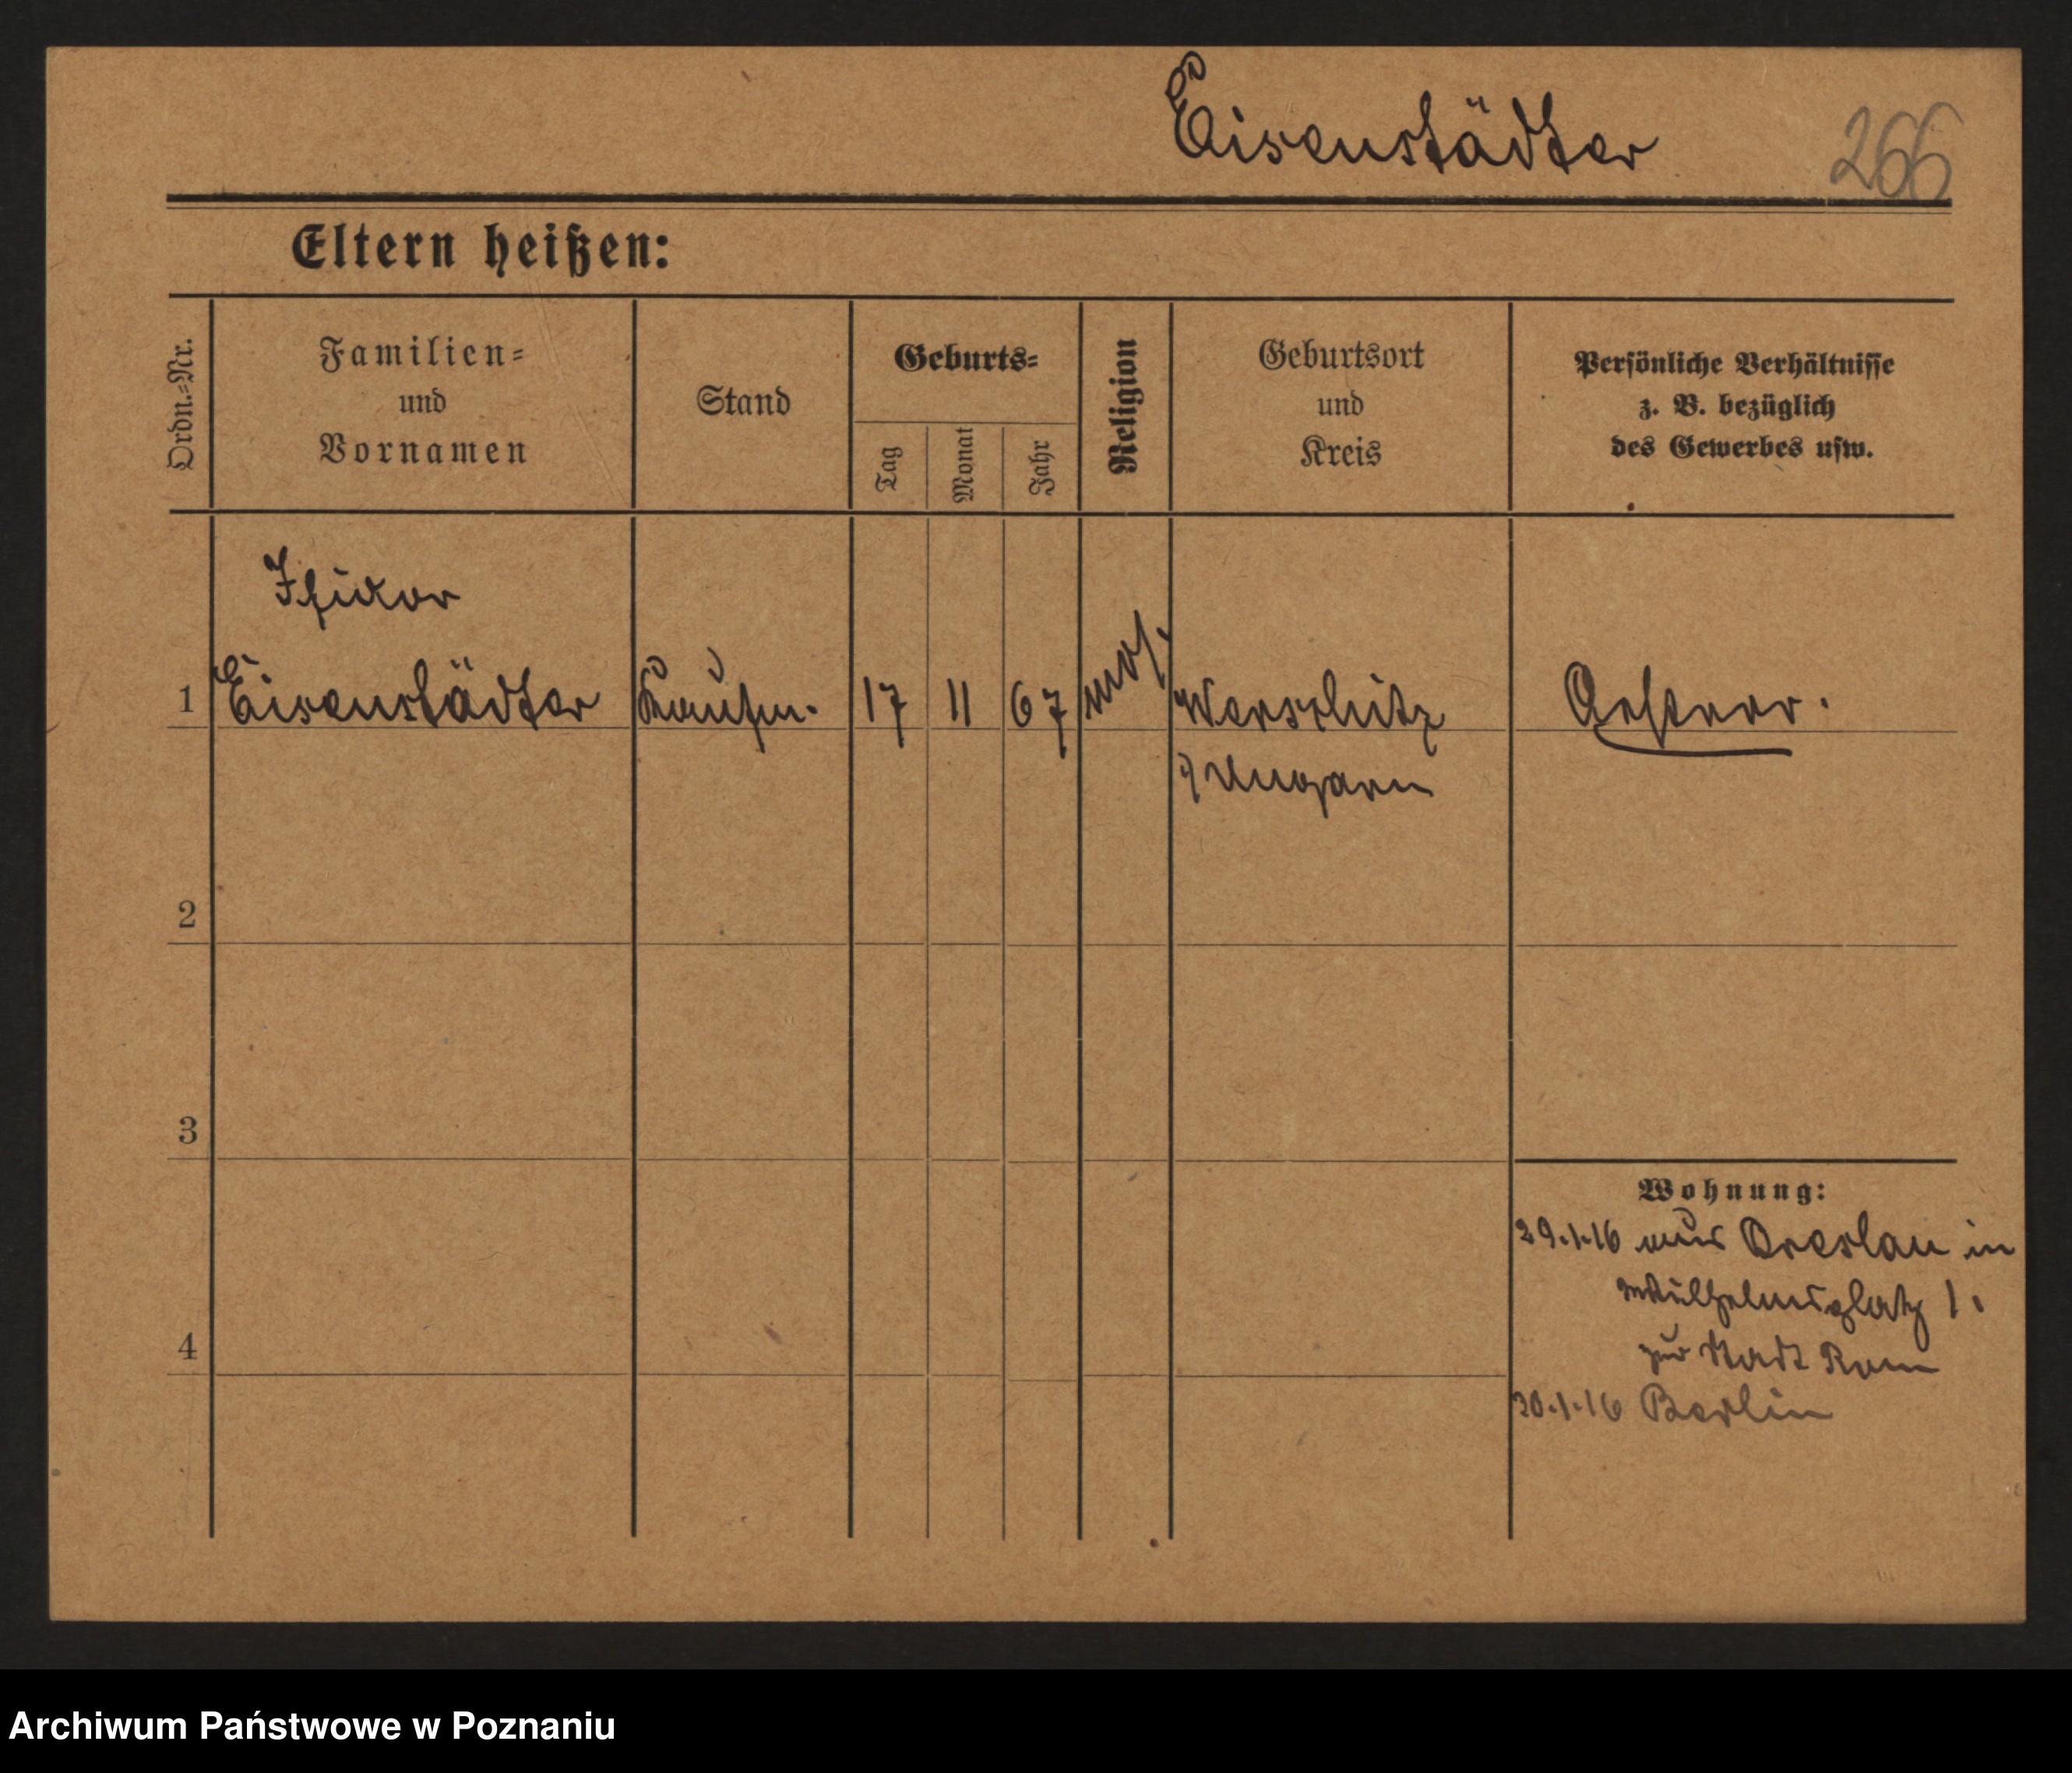 Eisenstädter 266
Eltern heißen:
Ordn.-Nr.
Familien-
und
Vornamen
Stand
Geburts-
Tag
Monat
Jahr
Religion
Geburtsort
und
Kreis
Persönliche Verhältnisse
z. B. bezüglich
des Gewerbes usw.
Isidor
1 Eisenstädter Kaufm. 17 11 67 mos. Werschitz Oesterr.
i/ Ungarn
2
3
4
Wohnung:
29.1.16 aus Breslau in
Wilhelmsplatz 1.
zur Stadt Rom
30.1.16 Berlin
Archiwum Państwowe w Poznaniu